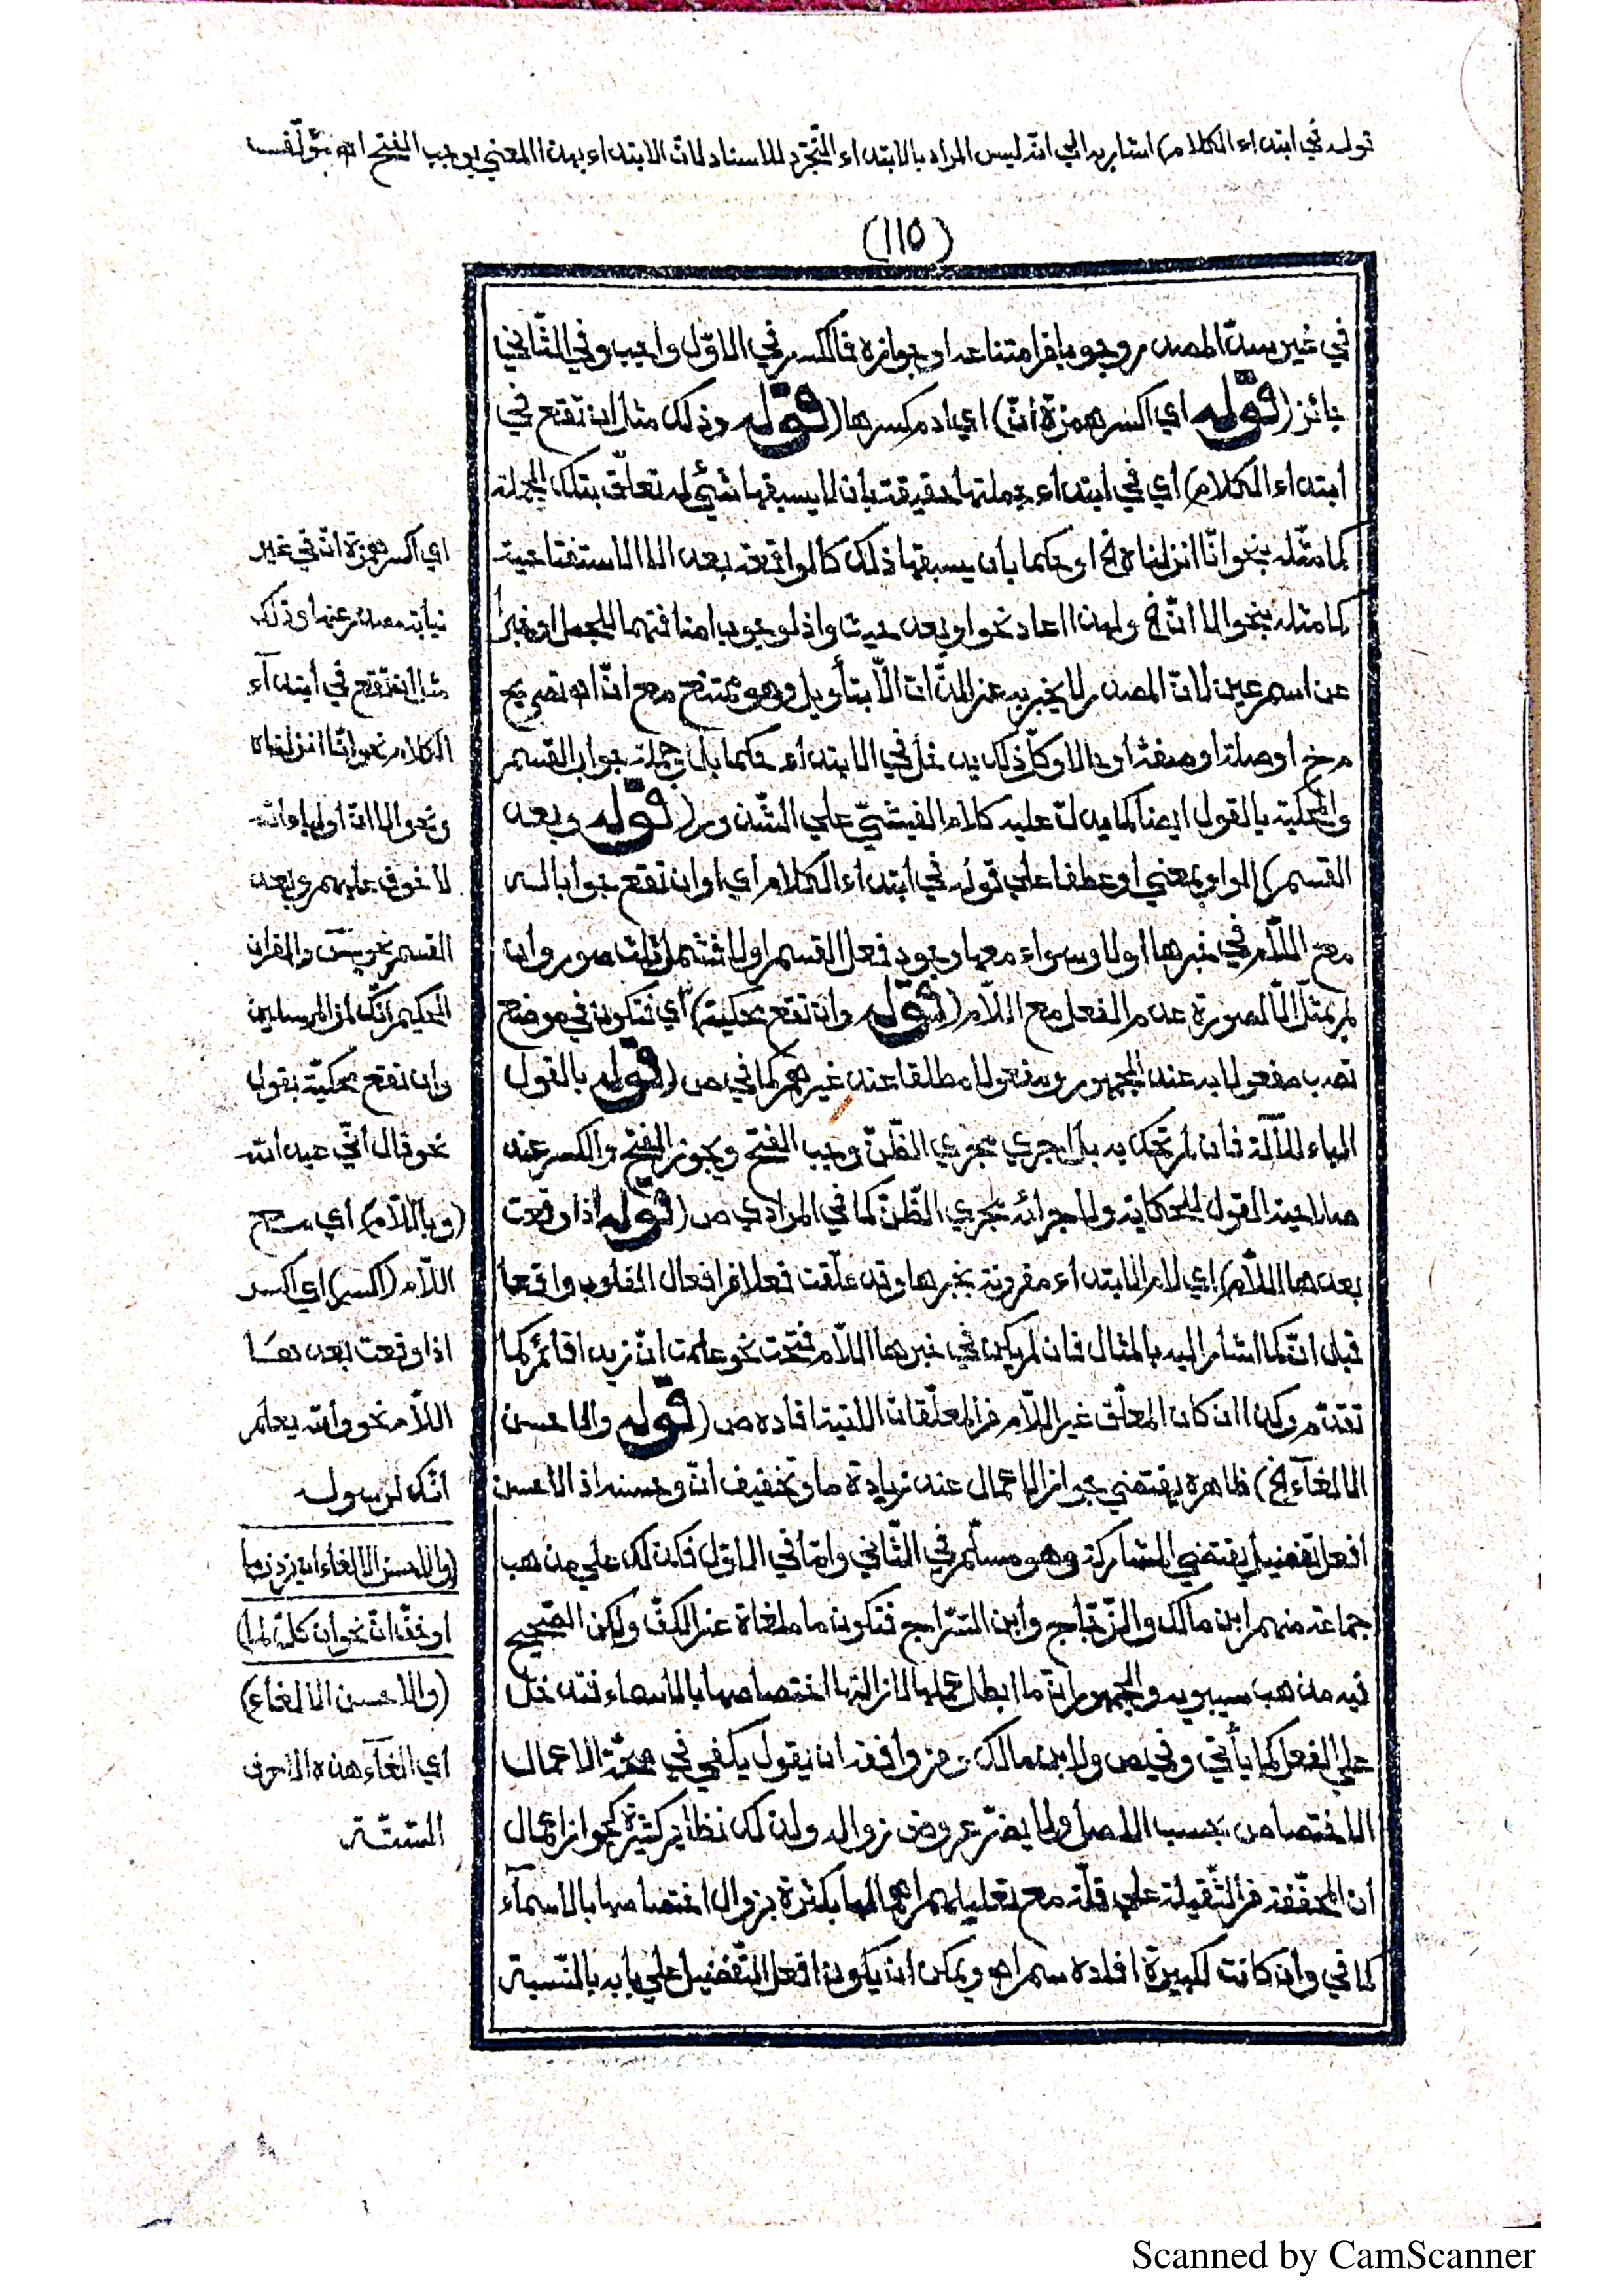 قوله في ابتداء الكلام) اشار به الي انّه ليس المراد بالابتداء التّجرّد للاسناد لانّ الابتداء بهذا المعني يوجب الفتح اه مؤلّفه
(١١٥)
في غير سدّ المصدر وجوبا فرامتناعه او جوازه فالكسر في الاوّل واجب وفي الثّاني
جائز (قوله اي اكسر همزة أنّ) اي ادم كسرها (قوله وذلك مثل ان تقع في
ابتداء الكلام) أي في ابتداء جملتها حقيقة بان لا يسبقها شيئ له تعلّق بتلك الجملة
كما مثّله بنحو انّا انزلناه الخ او حكما بأن يسبقها ذلك كالواقعة بعد الا الاستفتاحية
كما مثله بنحو الا انّ الخ ولهذا اعاد نحو او بعد حيث واذ لوجوب اضافتهما للجمل او خبرا
عن اسم عين لانّ المصدر لا يخبر به عن الذّات الّا بتأويل وهو ممتنع مع انّ اه تصريح
م خ او صلة او صفة أو حالا وكلّ ذلك يدخل في الابتداء حكما بل وجملة جواب القسم
والمحكية بالقول ايضا كما يدلّ عليه كلام الفيشيّ علي الشّذور (قوله وبعد
القسم) الواو بمعني أو عطفا علي قوله في ابتداء الكلام أي او ان تقع جوابا له
مع اللّام في خبرها اولا وسواء معها وجود فعل القسم اولا فشمل ثلث صور وان
لم يمثّل الّا لصورة عدم الفعل مع اللّام (قوله وان تقع محكية) أي فتكون في موضع
نصب مفعولا به عند الجمهور ومفعولا مطلقا عند غيرهم كما في ص (قوله بالقول
الباء للآلة فان لم تحك به بل اجري مجري الظّنّ وجب الفتح ويجوز الفتح والكسر عند
صلاحية القول للحكاية ولاجرائه مجري الظّنّ كما في المرادي ص (قوله اذا وقعت
بعدها اللّام) اي لام الابتداء مقرونة بخبرها وقد علّقت فعلا من افعال القلوب واقعا
قبل انّ كما اشار اليه بالمثال فان لم يكن في خبرها اللّام فتحت نحو علمت انّ زيدا قائم كما
تقدّم وكذا ان كان المعلّق غير اللّام من المعلّقات الاتية افاده ص (قوله والاحسن
الالغآء الخ) ظاهره يقتضي جواز الاعمال عند زيادة ما وتخفيف انّ وحسنه اذ الاحسن
افعل تفضيل يقتضي المشاركة وهو مسلّم في الثّاني وامّا في الاوّل فكذلك علي مذهب
جماعة منهم ابن مالك والزّجّاج وابن السّرّاج فتكون ما ملغاة عن الكفّ ولكن الصّحيح
فيه مذهب سيبويه والجمهور انّ ما ابطل عملها لازالتها اختصاصها بالاسماء فتدخل
علي الفعل كما يأتي وفي ص ولابن مالك ومن وافقه ان يقول يكفي في صحّة الاعمال
الاختصاص بحسب الاصل ولا يضرّ عروض زواله ولذلك نظائر كثيرة كجواز اعمال
ان المخفّفة من الثّقيلة علي قلّة مع تعليلهم اهمالها بكثرة بزوال اختصاصها بالاسمآء
كما في وان كانت لكبيرة افاده سم اه ويمكن ان يكون افعل التّفضيل علي بابه بالنّسبة
اي اكسر همزة أنّ في غير
نيابة مصدر عنها وذلك
مثل ان تقع في أبتدآء
الكلام نحو انّا انزلناه
ونحو الا انّ أوليا، الله
لا خوف عليهم وبعد
القسم نحو يس والقرآن
الحكيم انّك لمن المرسلين
وان تقع محكيّة بقول
نحو قال انّي عبد الله
(وباللّام) أي مع
اللّام (اكسر) اي اكسر
اذا وقعت بعدها
اللّام نحو والله يعلم
انّك لرسوله
(والاحسن الالغاء ان يزد ما
او خفّ انّ نحو ان كلّ لما)
(والاحسن الالغاء)
أي الغآء هذه الاحرف
السّتّة
Scanned by CamScanner